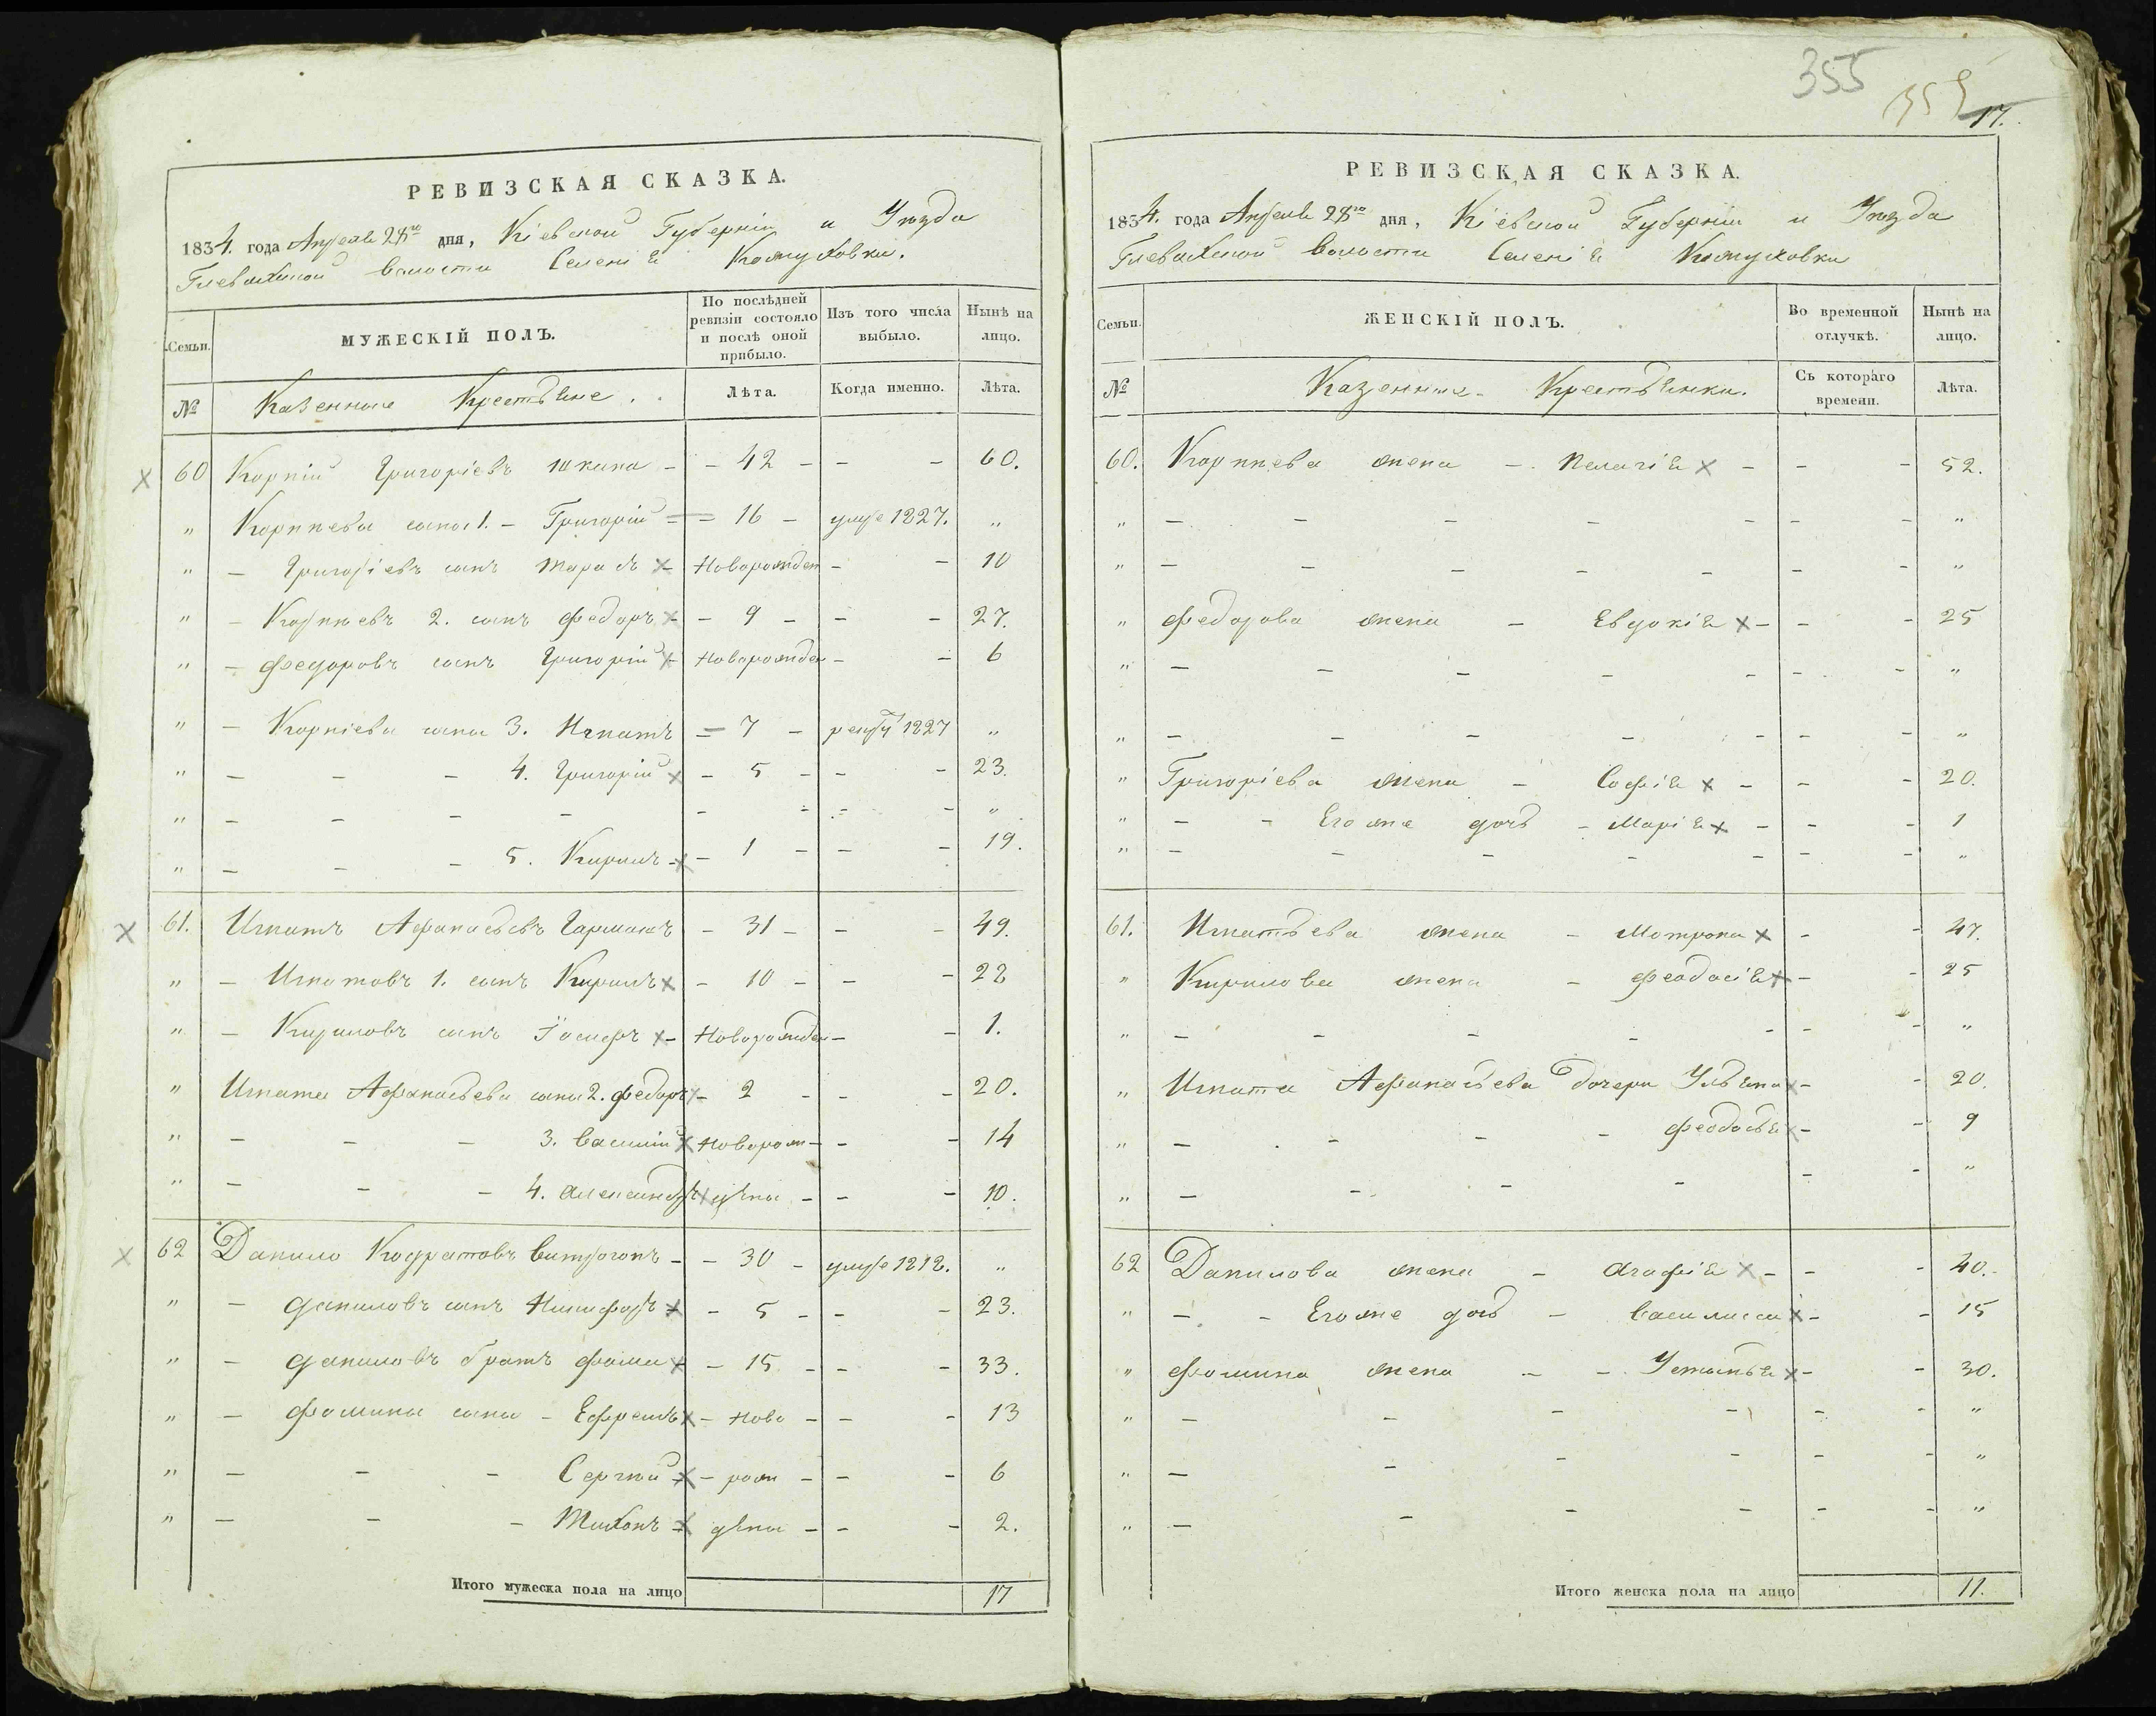 РЕВИЗСКАЯ СКАЗКА.
1834. года Апреля 28го дня, Кіевской Губерніи и Уѣзда
Глевахской волости Селенія
Семьи. МУЖЕСКІЙ ПОЛЪ. По послѣдней ревизіи состояло и послѣ оной прибыло. Изъ того числа выбыло. Нынѣ на лицо.
№ Казенные Крестьяне. Лѣта. Когда именно. Лѣта.
60 Корній Григоріевъ - - 42 - - - 60.
" Корнѣевы сыны 1. - Григорій - - 16 - умре 1827. "
" - Григоріевъ сынъ Тарасъ - Новорожден - - 10
" - Корнѣевъ 2. сынъ Федоръ - - 9 - - - 27.
" - Федоровъ сынъ Григорій - Новорожден - - 6
" - Корніевы сыны 3. Игнатъ - 7 - 1827 "
" - - - 4. Григорій - 5 - - - 23.
" - - - - - - - - "
" - - - 5. Кирилъ - - 1 - - - 19.
61. Игнатъ Афанасьевъ - 31 - - - 49.
" - Игнатовъ 1. сынъ Кирилъ - 10 - - - 28
" - Кириловъ сынъ Іосифъ - Новорожден - - 1.
" Игната Афанасьева сыны 2. Федоръ - 2 - - - 20.
" - - - 3. Василій Новорож - - - 14
" - - - 4. Александръ дены - - - 10.
62 Данило Кодратовъ - - 30 - умре 1818. "
" - Даниловъ сынъ Никифоръ - - 5 - - - 23.
" - Даниловъ братъ Фома - - 15 - - - 33.
" - Фомины сыны - Ефремъ - Ново - - - 13
" - - - Сергѣй - - рож - - - 6
" - - - Тихонъ - дены - - - 2.
Итого мужеска пола на лицо 17
355
17.
РЕВИЗСКАЯ СКАЗКА.
1834. года Апреля 28го дня, Кіевской Губерніи и Уѣзда
Глевахской волости Селенія
Семьи. ЖЕНСКІЙ ПОЛЪ. Во временной отлучкѣ. Нынѣ на лицо.
№ Казенные Крестьянки. Съ котораго времени. Лѣта.
60. Корнѣева жена - Пелагія - - - 52.
" - - - - - - - "
" - - - - - - - "
" Федорова жена - Евдокія - - - 25
" - - - - - - - "
" - - - - - - - "
" Григоріева жена - Софія - - - 20.
" - - Его же дочь - Марія - - - 1
" - - - - - - - "
61. Игнатьева жена - Мотрона - - 47.
" Кирилова жена - Феодосія - - 25
" - - - - - - - "
" Игната Афанасьева дочери Ульяна - - 20.
" - - - - Феодосья - - 9
" - - - - - - "
62 Данилова жена - Агафія - - - 40.
" - - Его же дочь - Василиса - - 15
" Фомина жена - - Устинья - - 30.
" - - - - - - "
" - - - - - - "
" - - - - - - "
Итого женска пола на лицо 11.